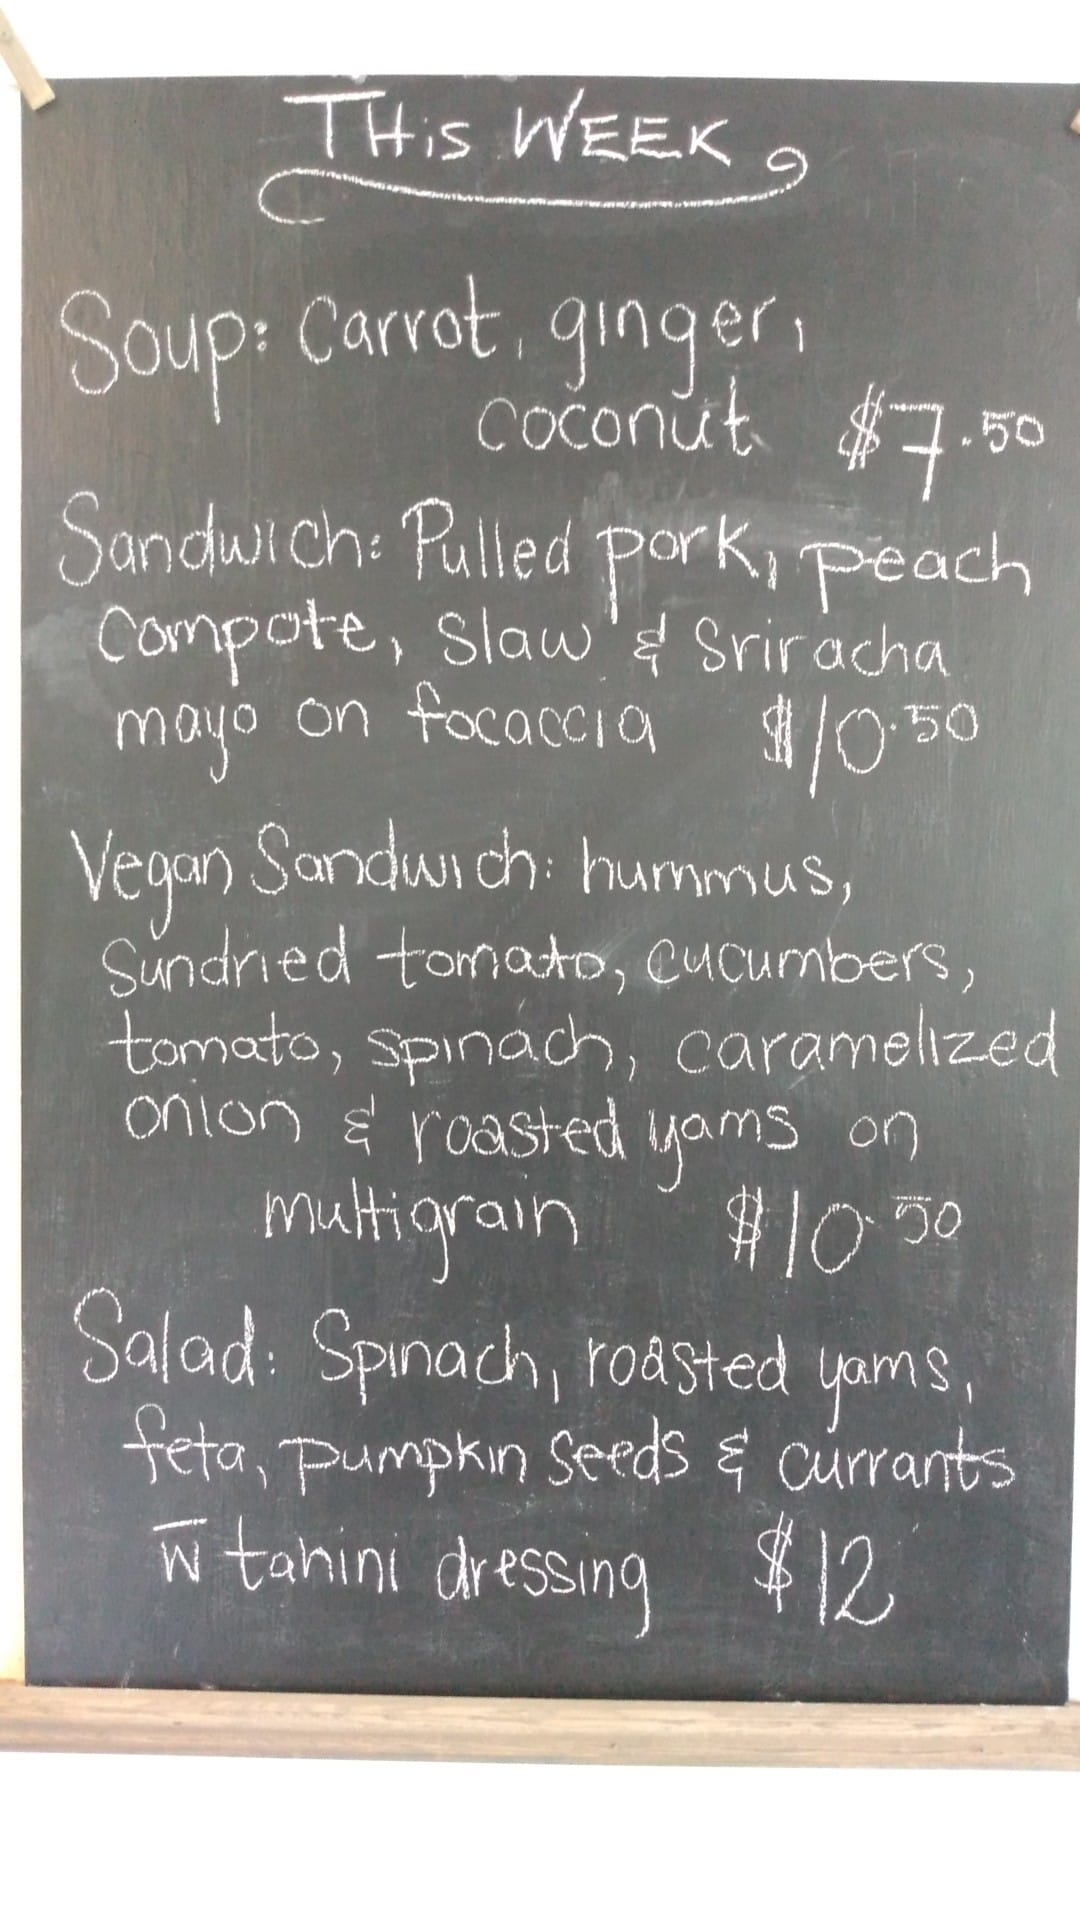 THiS WEEK
Soup: Carrot, ginger,
coconut $7.50
Sandwich: Pulled pork, peach
Compote, Slaw & Sriracha
mayo on focaccia $10.50
Vegan Sandwich: hummus,
Sundried tomato, cucumbers,
tomato, spinach, caramelized
onion & roasted yams on
multigrain $10.50
Salad: Spinach, roasted yams,
feta, pumpkin seeds & currants
w̅ tahini dressing $12